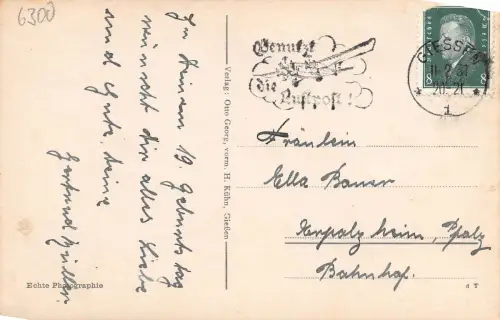 6300
Zu Deinem 19. Geburtstag
wünscht dir alles Liebe
und Gute, deine
Gertrud
Echte Photographie
Verlag: Otto Georg, vorm. H. Kühn, Gießen
Benutzt
die Luftpost!
Deutsches
8
8
GIESSEN
20-21
1
Fräulein
Ella Bauer
Erpolzheim, Pfalz
Bahnhof.